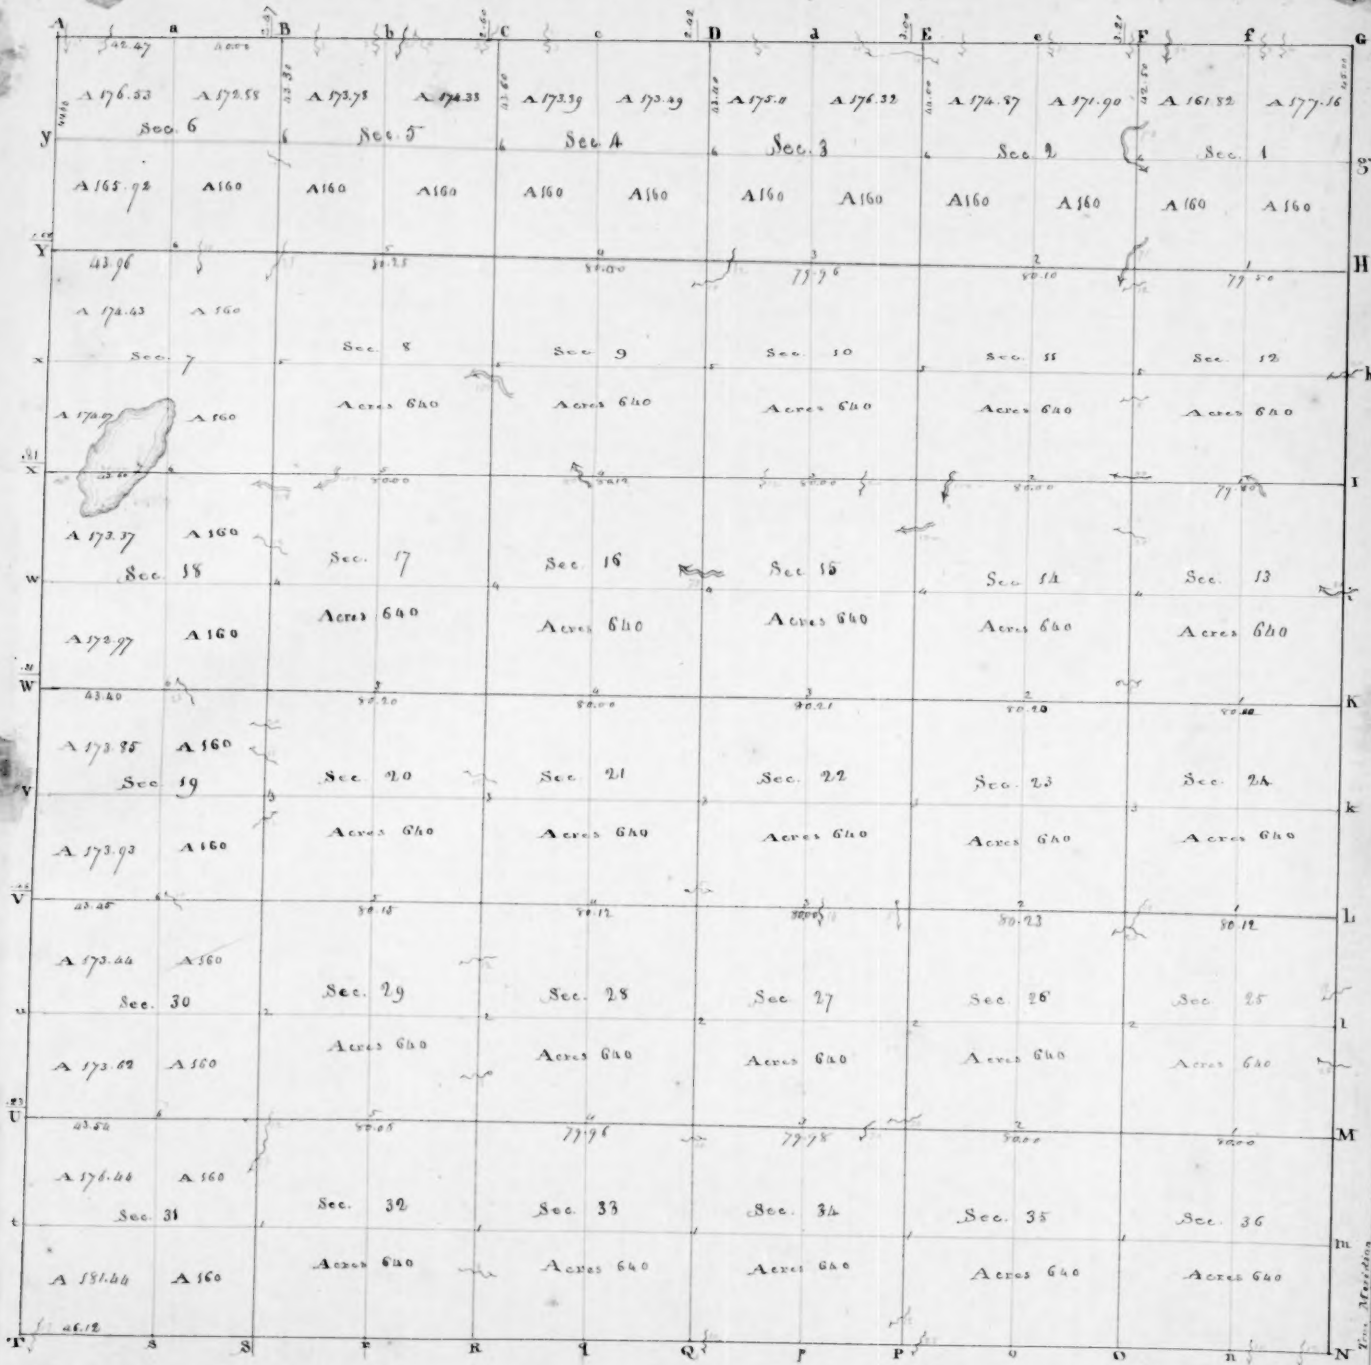 A a B b C c D d E e F f G
2.60 2.42 3.00 3.21
42.47 40.00
43.30 43.60 43.40 44.00 42.50 45.00
A 176.53 A 172.58 A 173.78 A 174.33 A 173.39 A 173.49 A 175.11 A 176.32 A 174.87 A 171.90 A 161.82 A 177.16
Sec. 6 Sec. 5 Sec 4 Sec. 3 Sec 2 Sec. 1
y 6 6 6 6 6 g
A 165.92 A 160 A 160 A 160 A 160 A 160 A 160 A 160 A 160 A 160 A 160 A 160
Y 6 5 4 3 2 1 H
43.96 80.25 80.00 79.96 80.10 79.50
A 174.43 A 160
Sec. 7 Sec. 8 Sec 9 Sec. 10 Sec. 11 Sec. 12
x 5 5 5 5 5 h
A 160 Acres 640 Acres 640 Acres 640 Acres 640 Acres 640
.21
X 6 5 4 3 2 1 I
80.00 80.12 80.00 80.00
A 173.37 A 160
Sec. 18 Sec. 17 Sec. 16 Sec 15 Sec 14 Sec. 13
w 4 4 4 4 4 i
A 172.97 A 160 Acres 640 Acres 640 Acres 640 Acres 640 Acres 640
.21
W 6 5 4 3 2 1 K
43.40 80.20 80.00 80.21 80.20 80.00
A 173.85 A 160
Sec 19 Sec 20 Sec 21 Sec. 22 Sec. 23 Sec. 24
v 3 3 3 3 3 k
A 173.93 A 160 Acres 640 Acres 640 Acres 640 Acres 640 Acres 640
V 6 5 4 3 2 1 L
43.45 80.15 80.12 80.00 80.23 80.12
A 173.44 A 160
Sec. 30 Sec. 29 Sec. 28 Sec 27 Sec. 26 Sec 25
u 2 2 2 2 2 l
A 173.62 A 160 Acres 640 Acres 640 Acres 640 Acres 640 Acres 640
.23
U 6 5 4 3 2 1 M
43.54 80.05 79.96 79.78 80.00 80.00
A 176.44 A 160
Sec. 31 Sec. 32 Sec. 33 Sec. 34 Sec. 35 Sec. 36
t 1 1 1 1 1 m
A 181.44 A 160 Acres 640 Acres 640 Acres 640 Acres 640 Acres 640
46.12
T s S r R q Q p P o O n N
Meridian